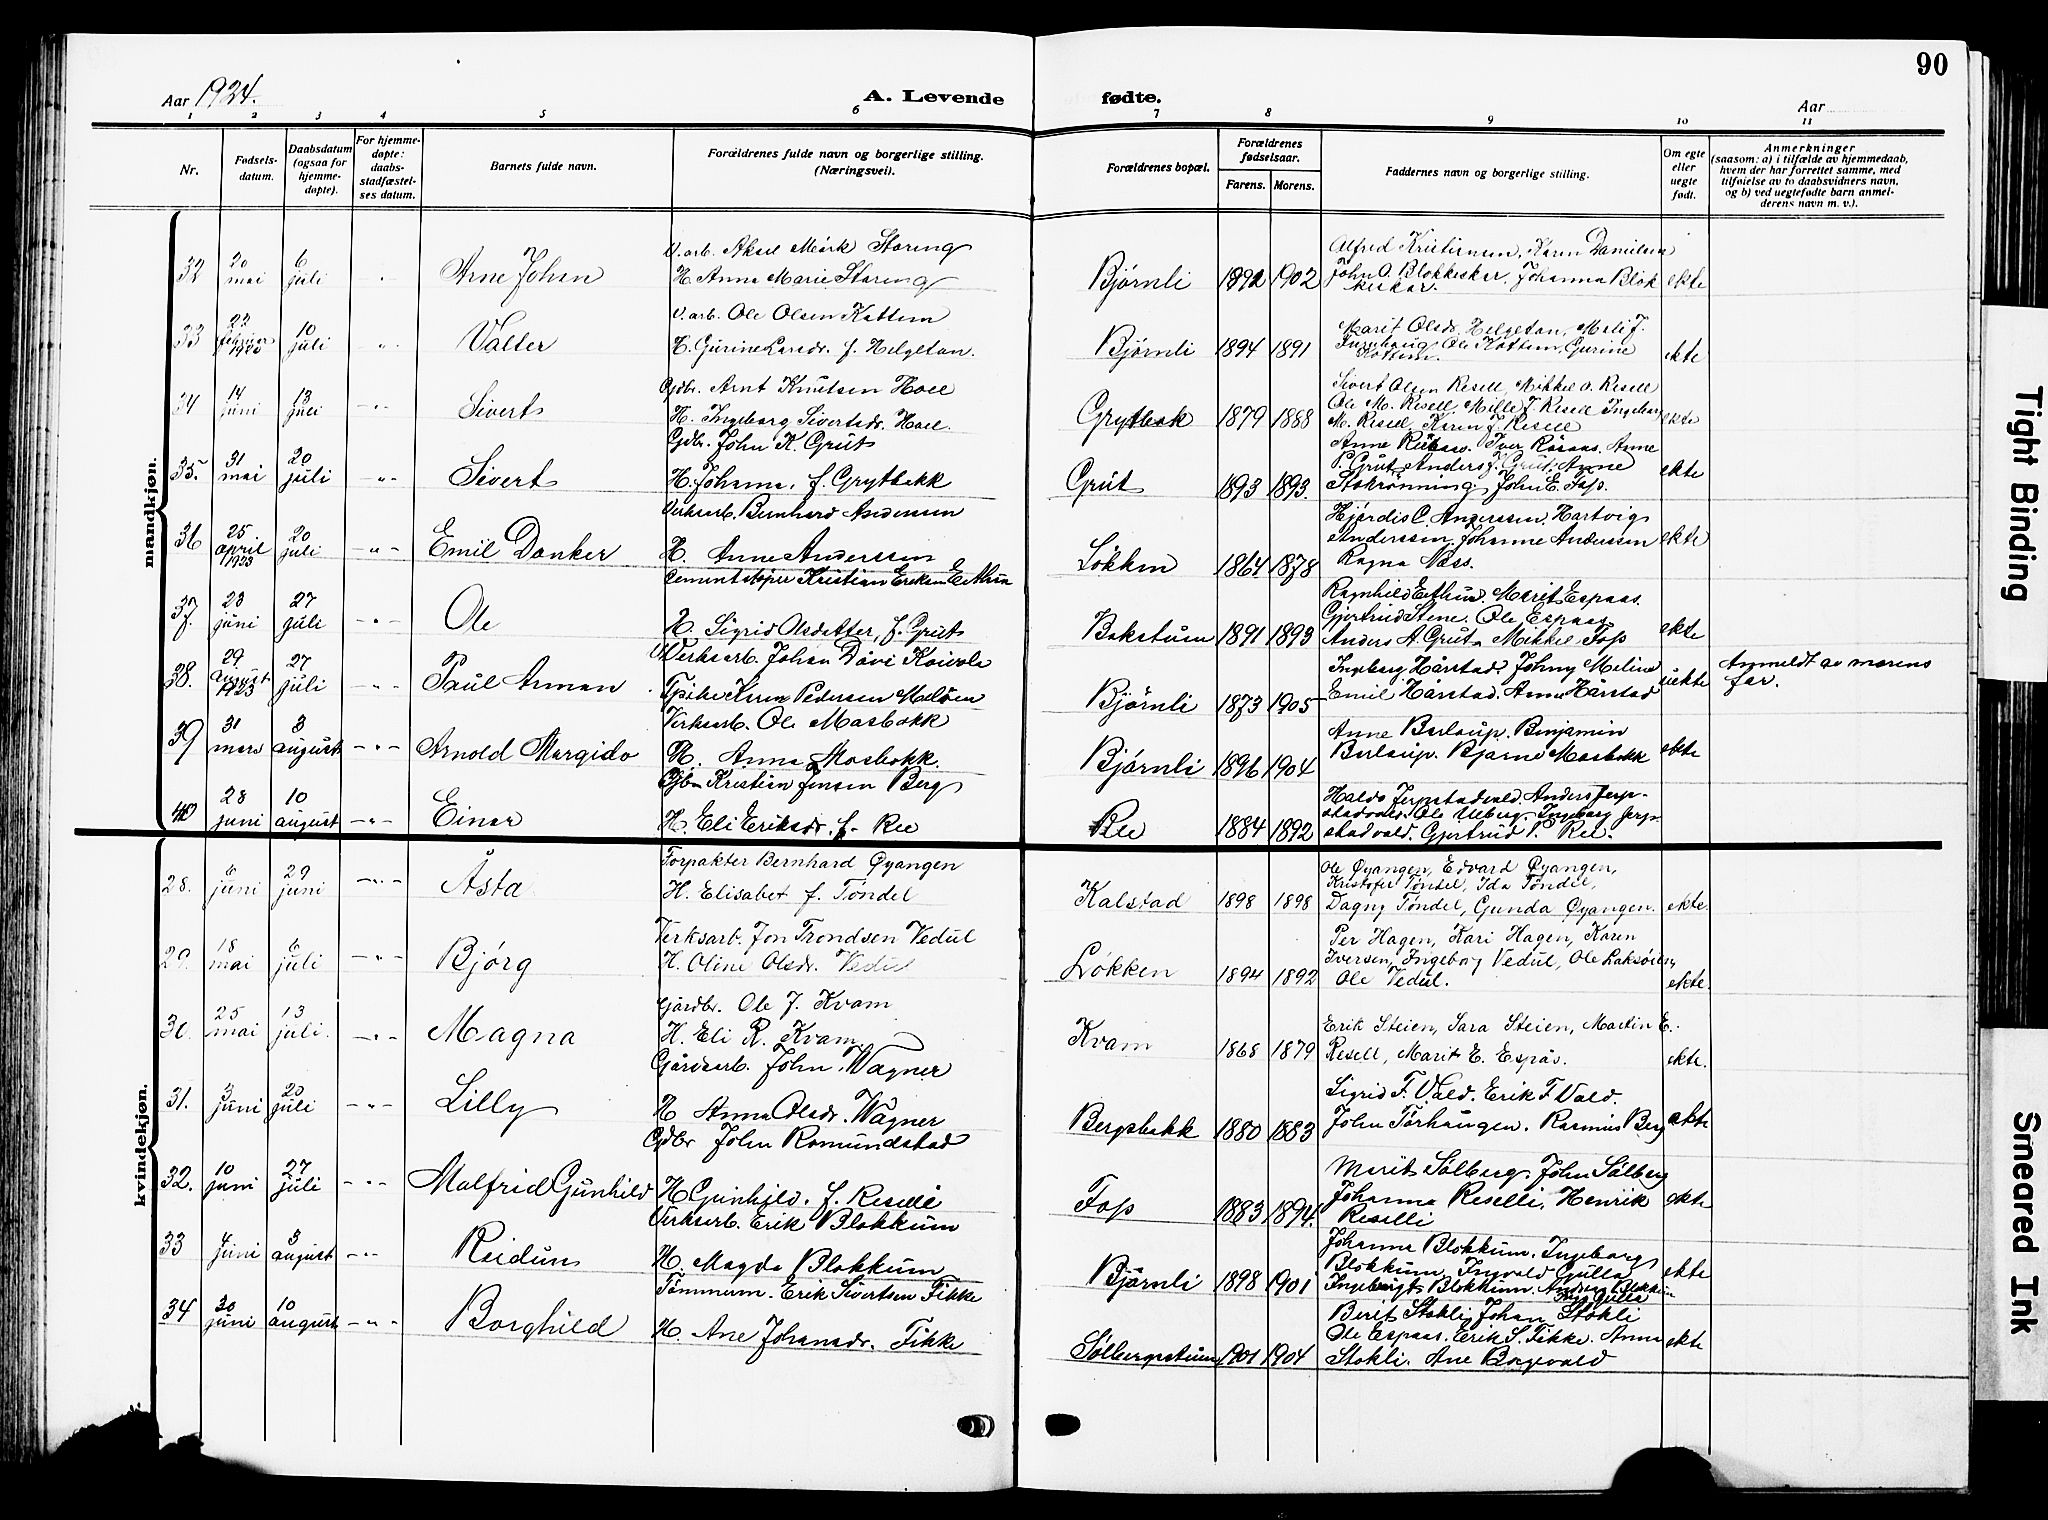 90
Aar 1924.
A. Levende fødte.
Aar
1 2 3 4 5 6 7 8 9 10 11
Nr.
Fødsels-
datum.
Daabsdatum
(ogsaa for
hjemme-
døpte).
For hjemme-
døpte:
daabs-
stadfæstel-
ses datum.
Barnets fulde navn.
Forældrenes fulde navn og borgerlige stilling.
(Næringsvei).
Forældrenes bopæl.
Forældrenes
fødselsaar.
Farens. Morens.
Faddernes navn og borgerlige stilling.
Om egte
eller
uegte
født.
Anmerkninger
(saasom: a) i tilfælde av hjemmedaab,
hvem der har forrettet samme, med
tilføielse av to daabsvidners navn,
og b) ved uegtefødte barn anmel-
derens navn m. v.).
mandkjøn.
32 20 mai 6 juli Arne Johan
V. arb. Aksel Mørk Støring
H. Anna Marie Støring
Bjørnli 1892 1902
Alfred Kristiansen, Karen Danielsen
John O. Blokkeskar. Johanna Blok
keskar.
ekte
33 22 februar 1923 10 juli Valter
V. arb. Ole Olsen Kattem
H. Gurine Larsdr. f. Helgetun.
Bjørnli 1894 1891
Marit Olsdr. Helgetun, Meli J.
Ingebaug Ole Kattem, Gurine
Kattem.
ekte
34 14 juni 13 juli Sivert
Gdbr. Arnt Knutsen Hoel
H. Ingeborg Sivertsdr. Hoel.
Grytbak 1879 1888
Sivert Olsen Resell, Mikkel O. Resell
Ole M. Resell, Mille J. Resell Ingeborg
M. Resell, Karen J. Resell
ekte
35. 31 mai 20 juli Sivert
Gdbr. John K. Grut
H. Johanna. f. Grytbakk
Grut 1893 1893.
Anne Iver Råsaas, Anne
P. Grut, Anders J. Grut, Anne
Stokrønning. John E. Fos.
ekte
36 25 april 1923 20 juli Emil Danker
Verksarb. Bernhard Anderssen
H. Anne Anderssen
Løkken 1864 1878
Hjørdis C. Anderssen. Hartvig
Anderssen, Johanne Anderssen
Ragna Næss.
ekte
37. 23 juni 27 juli Ole
Cementstøper Kristian Eriksen Eithun
H. Sigrid Olsdatter, f. Grut
Bakstuen 1891 1893
Ragnhild Eithun. Marit Espaas.
Gjertrud Stene. Ole Espaas
Anders A. Grut. Mikkel Fos
ekte
38. 29 august 1923 27 juli Paul Arman
Verksarb. Johan Davi Koivola
Karen Pedersen Malløen
Bjørnli 1873 1905
Ingeborg Hårstad. Johny Meline
Emil Hårstad. Anna Hårstad
uekte
Anmeldt av morens
far.
39 31 mars 3 august Arnold Margido
Verksarb. Ole Mosbakk
H. Anna Mosbakk.
Bjørnli 1896 1904
Anne Berlaup. Benjamin
Berlaup. Bjarne Mosbakk
ekte
40 28 juni 10 august Einar
Gbr. Kristian Jensen Berg
H. Eli Eriksdr. f. Ree
Ree 1884 1892
Haldo Jerpstadvald. Anders Jerp-
stadvald. Ole Ulberg, Ingeborg Jerp-
stadvald. Gjertrud P. Ree.
kvindekjøn.
28. 6 juni 29 juni Åsta
Forpakter Bernhard Øyangen
H. Elisabet f. Tøndel
Kalstad 1898 1898
Ole Øyangen, Edvard Øyangen,
Kristofer Tøndel, Ida Tøndel,
Dagny Tøndel, Gunda Øyangen.
ekte.
29. 18 mai 6 juli Bjørg
Verksarb. Jon Trondsen Vedul
H. Oline Olsdr. Vedul
Løkken 1894 1892
Per Hagen, Kari Hagen, Karen
Iversen, Ingeborg Vedul, Ole Laksøien,
Ole Vedul.
ekte.
30. 25 mai 13 juli. Magna
Gårdbr. Ole J. Kvam
H. Eli R. Kvam.
Kvam 1868 1879
Erik Steien, Sara Steien, Martin E.
Resell, Marit E. Espås.
ekte.
31. 3 juni 20 juli Lilly
Gårdsarb. John Wagner
H. Anna Olsdr. Wagner
Bergsbakk 1880 1883
Sigrid F. Vald. Erik F. Vald.
John Tørhaugen. Rasmus Berg
ekte
32. 10 juni 27 juli Malfrid Gunhild
Gdbr John Romundstad
H. Gunhild. f. Reselli
Fos 1883 1894.
Marit Sølberg, John Sølberg
Johanna Reselli, Henrik
Reselli
ekte
33 4 juni 3 august Reidun
Verksarb. Erik Blokkum
H. Magda Blokkum
Bjørnli 1898 1901
Johanna Blokkum. Ingeborg
Blokkum, Ingvald Gulla,
Ingebrigt Blokkum. Andreas Blokkum
Gulla
ekte
34 30 juni 10 august Borghild
Tømmerm. Erik Sivertsen Fikke
H. Ane Johansdr. Fikke
Sølbergstuen 1901 1904
Berit Stokli, Johan Stokli
Ole Espaas. Erik S. Fikke. Anna
Stokli. Ane Borgevald
ekte
Tight Binding
Smeared Ink